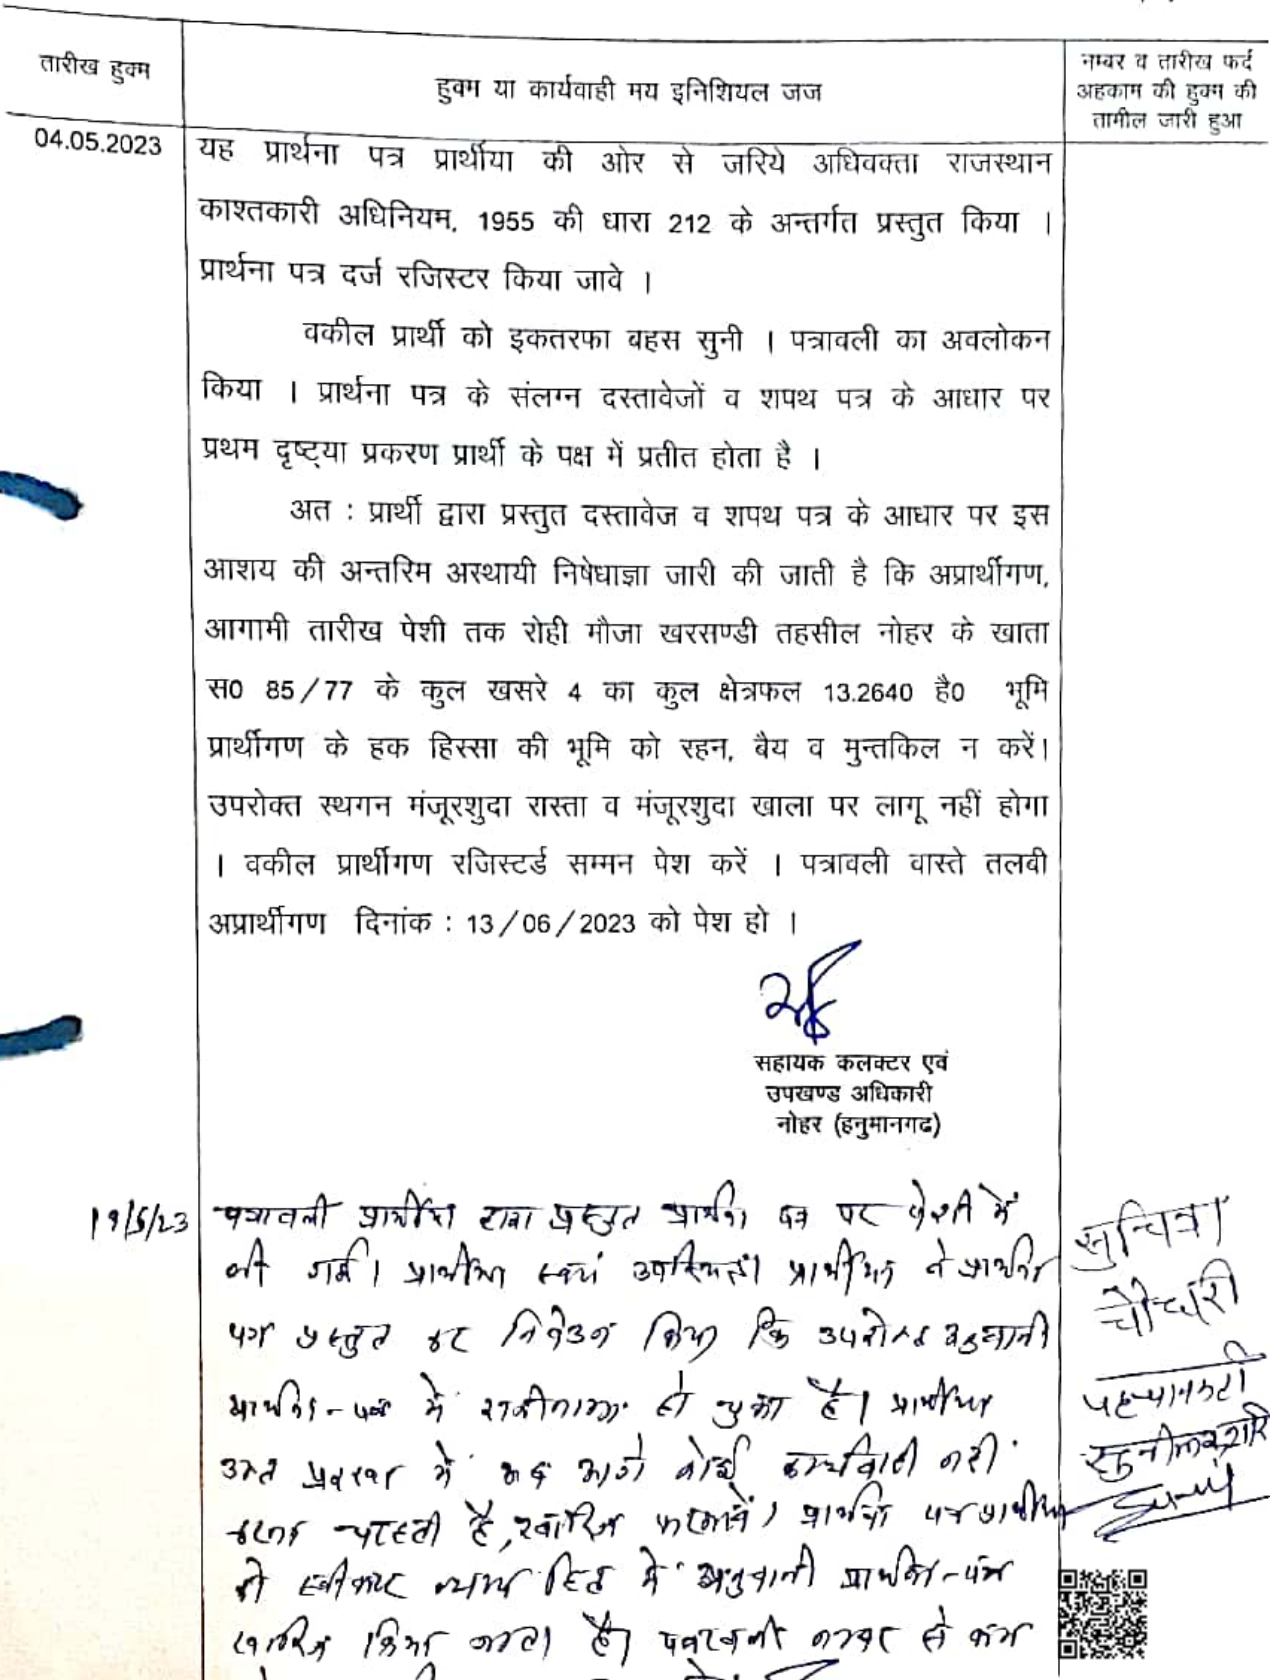 तारीख हुक्म
हुक्म या कार्यवाही मय इनिशियल जज
नम्बर व तारीख फर्द
अहकाम की हुक्म की
तामील जारी हुआ
04.05.2023
यह प्रार्थना पत्र प्रार्थीया की ओर से जरिये अधिवक्ता राजस्थान
काश्तकारी अधिनियम, 1955 की धारा 212 के अन्तर्गत प्रस्तुत किया ।
प्रार्थना पत्र दर्ज रजिस्टर किया जावे ।
वकील प्रार्थी को इकतरफा बहस सुनी । पत्रावली का अवलोकन
किया । प्रार्थना पत्र के संलग्न दस्तावेजों व शपथ पत्र के आधार पर
प्रथम दृष्ट्या प्रकरण प्रार्थी के पक्ष में प्रतीत होता है ।
अत : प्रार्थी द्वारा प्रस्तुत दस्तावेज व शपथ पत्र के आधार पर इस
आशय की अन्तरिम अस्थायी निषेधाज्ञा जारी की जाती है कि अप्रार्थीगण,
आगामी तारीख पेशी तक रोही मौजा खरसण्डी तहसील नोहर के खाता
स0 85/77 के कुल खसरे 4 का कुल क्षेत्रफल 13.2640 है0 भूमि
प्रार्थीगण के हक हिस्सा की भूमि को रहन, बैय व मुन्तकिल न करें।
उपरोक्त स्थगन मंजूरशुदा रास्ता व मंजूरशुदा खाला पर लागू नहीं होगा
। वकील प्रार्थीगण रजिस्टर्ड सम्मन पेश करें । पत्रावली वास्ते तलबी
अप्रार्थीगण दिनांक : 13/06/2023 को पेश हो ।
सहायक कलक्टर एवं
उपखण्ड अधिकारी
नोहर (हनुमानगढ)
19/5/23
पत्रावली प्रार्थीया द्वारा प्रस्तुत प्रार्थना पत्र पर पेशी में
ली गई। प्रार्थीया स्वयं उपस्थित। प्रार्थीया ने प्रार्थना
पत्र प्रस्तुत कर निवेदन किया कि उपरोक्त अनुवानी
प्रार्थना-पत्र में राजीनामा हो चुका है। प्रार्थीया
उक्त प्रकरण में अब आगे कोई कार्यवाही नहीं
करना चाहती है, खारिज फरमावें। प्रार्थना पत्र प्रार्थीया
को स्वीकार न्याय हित में अनुवानी प्रार्थना-पत्र
खारिज किया जाता है। पत्रावली नम्बर से कम
सुचित्रा
चौधरी
पहचानकर्ता